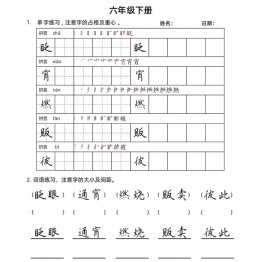 六年级下册
1. 单字练习，注意字的占格及重心。 姓名： 日期：
拼音 zhǎ
眨
拼音 xiāo
宵
拼音 rán
燃
拼音 fàn
贩
拼音 bǐ
彼
2. 词语练习，注意字的大小及间距。
(眨眼) (通宵) (燃烧) (贩卖) (彼此)
( ) ( ) ( ) ( ) ( )
眨眼 通宵 燃烧 贩卖 彼此